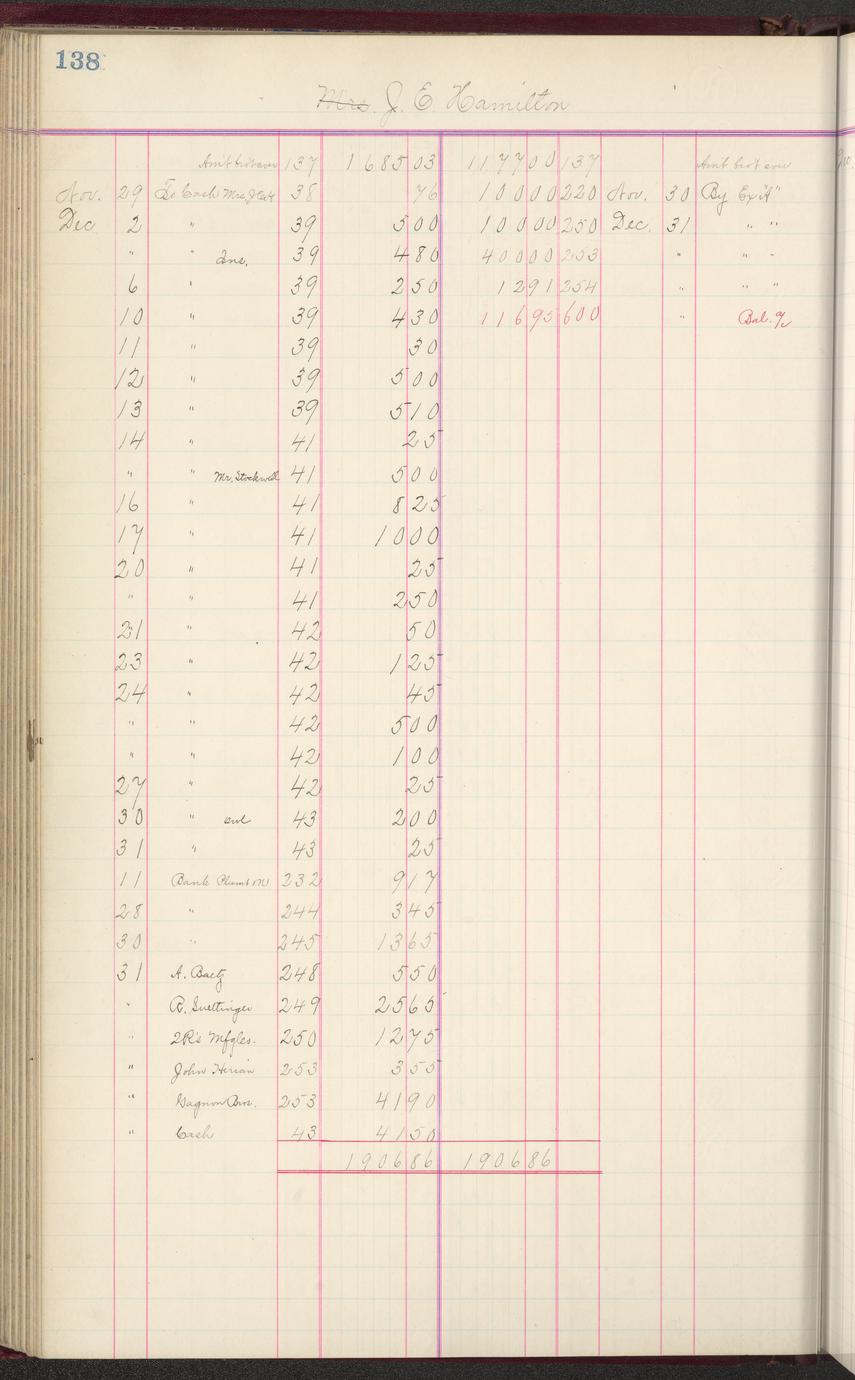 138
Mrs. J. E. Hamilton
Am't bro't over 137 1685 03 1177 00 137 Am't bro't over
Nov. 29 To Cash Mrs. J. E. H. 38 76 100 00 220 Nov. 30 By Ex "A"
Dec. 2 " 39 5 00 100 00 250 Dec. 31 " "
" " Ins. 39 4 80 400 00 253 " " "
6 " 39 2 50 12 91 254 " " "
10 " 39 4 30 116 95 600 " Bal. %
11 " 39 30
12 " 39 5 00
13 " 39 5 10
14 " 41 25
" " Mr. Stockwell 41 5 00
16 " 41 8 25
17 " 41 10 00
20 " 41 25
" " 41 2 50
21 " 42 50
23 " 42 1 25
24 " 42 45
" " 42 5 00
" " 42 1 00
27 " 42 25
30 " 43 2 00
31 " 43 25
11 Bank 232 9 17
28 " 244 3 45
30 " 245 13 65
31 A. Baetz 248 5 50
" R. Suettinger 249 25 65
" 2R's Mfgles. 250 12 75
" John 253 3 55
" Gagnon Bros. 253 41 90
" Cash 43 41 50
1906 86 1906 86